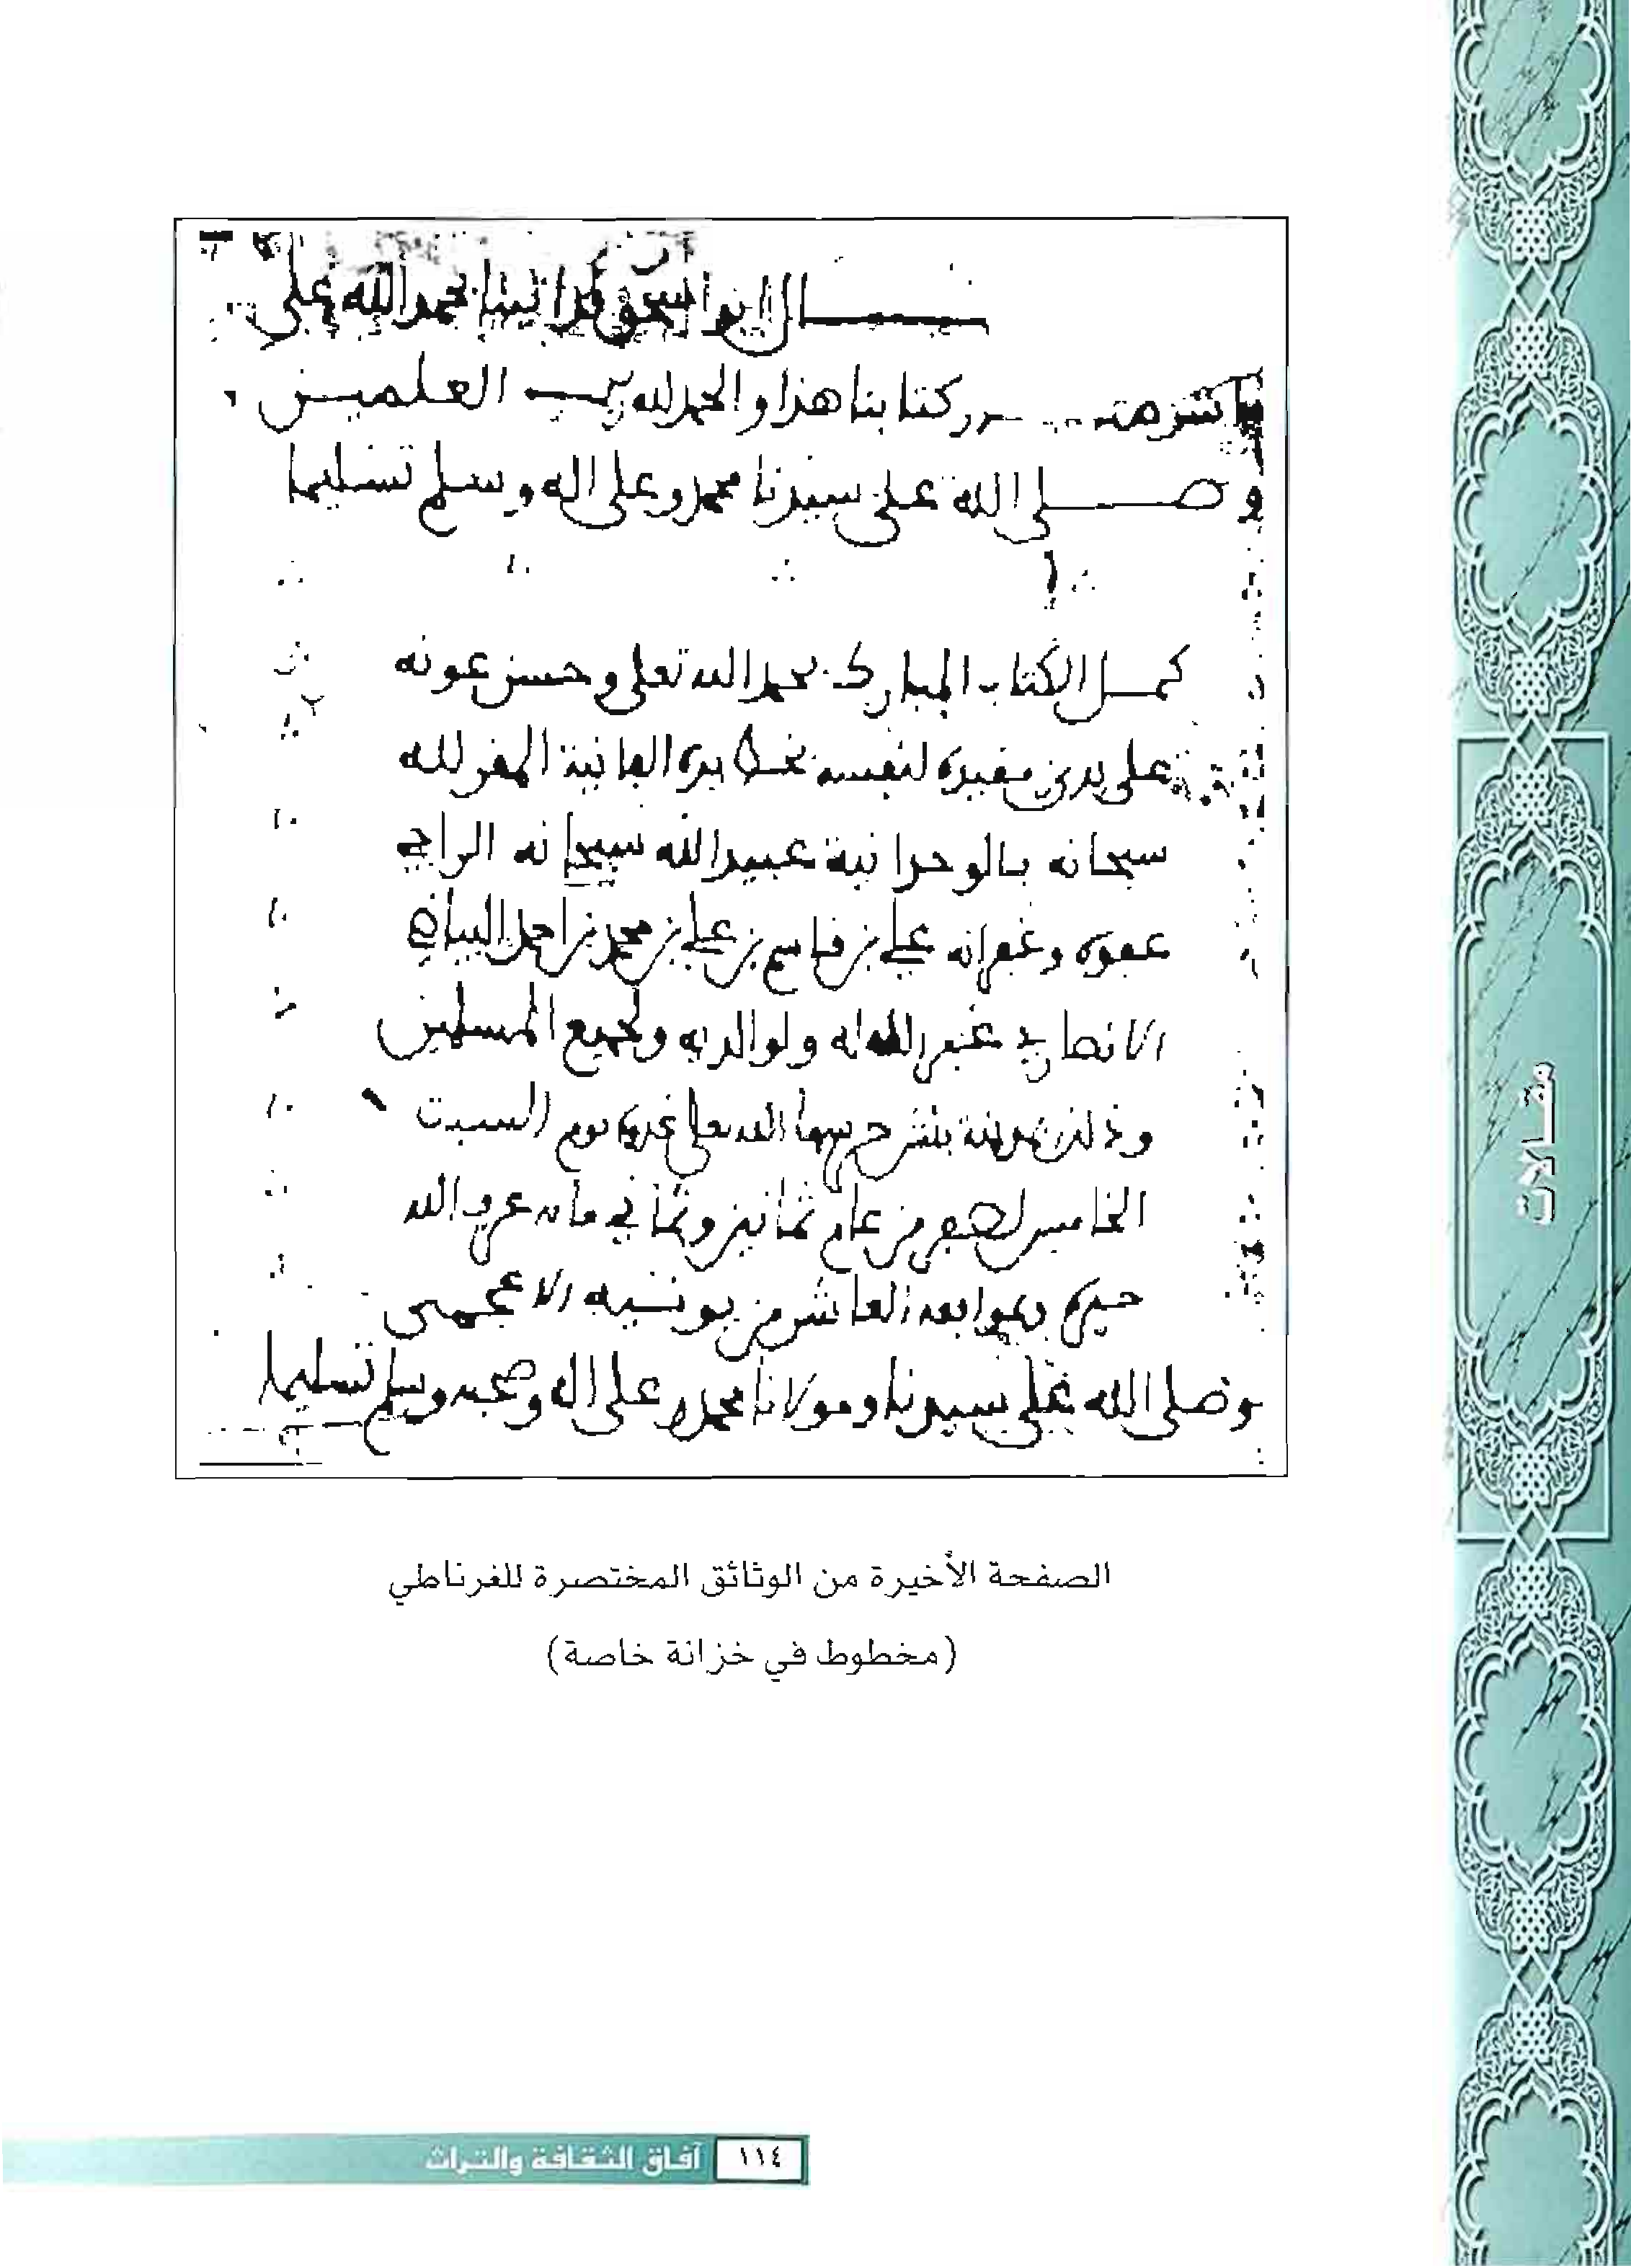 قال أبو اسحق قد أتينا بحمد الله على
ما شر كتابنا هذا والحمد لله رب العلمين
وصلى الله على سيدنا محمد وعلى اله وسلم تسليما
كمل الكتاب المبارك بحمد الله تعلى وحسن عونه
على يدي مفيده لنفسه بخط يده الفانية المقر لله
سبحانه بالوحدانية عبيد الله سبحانه الراجي
عفوه وغفرانه علي بن قاسم بن علي بن محمد بن احمد البياني
الانصاري غفر الله له ولوالديه ولجميع المسلمين
وذلك بمدينة حرسها الله تعلى يوم السبت
الخامس لصفر من عام ثمانين وثماني مائة عرف الله
خيره العاشر من يونيه الاعجمي
وصلى الله على سيدنا ومولانا محمد وعلى اله وصحبه وسلم تسليما
الصفحة الأخيرة من الوثائق المختصرة للغرناطي
(مخطوط في خزانة خاصة)
مقالات
١١٤ آفاق الثقافة والتراث